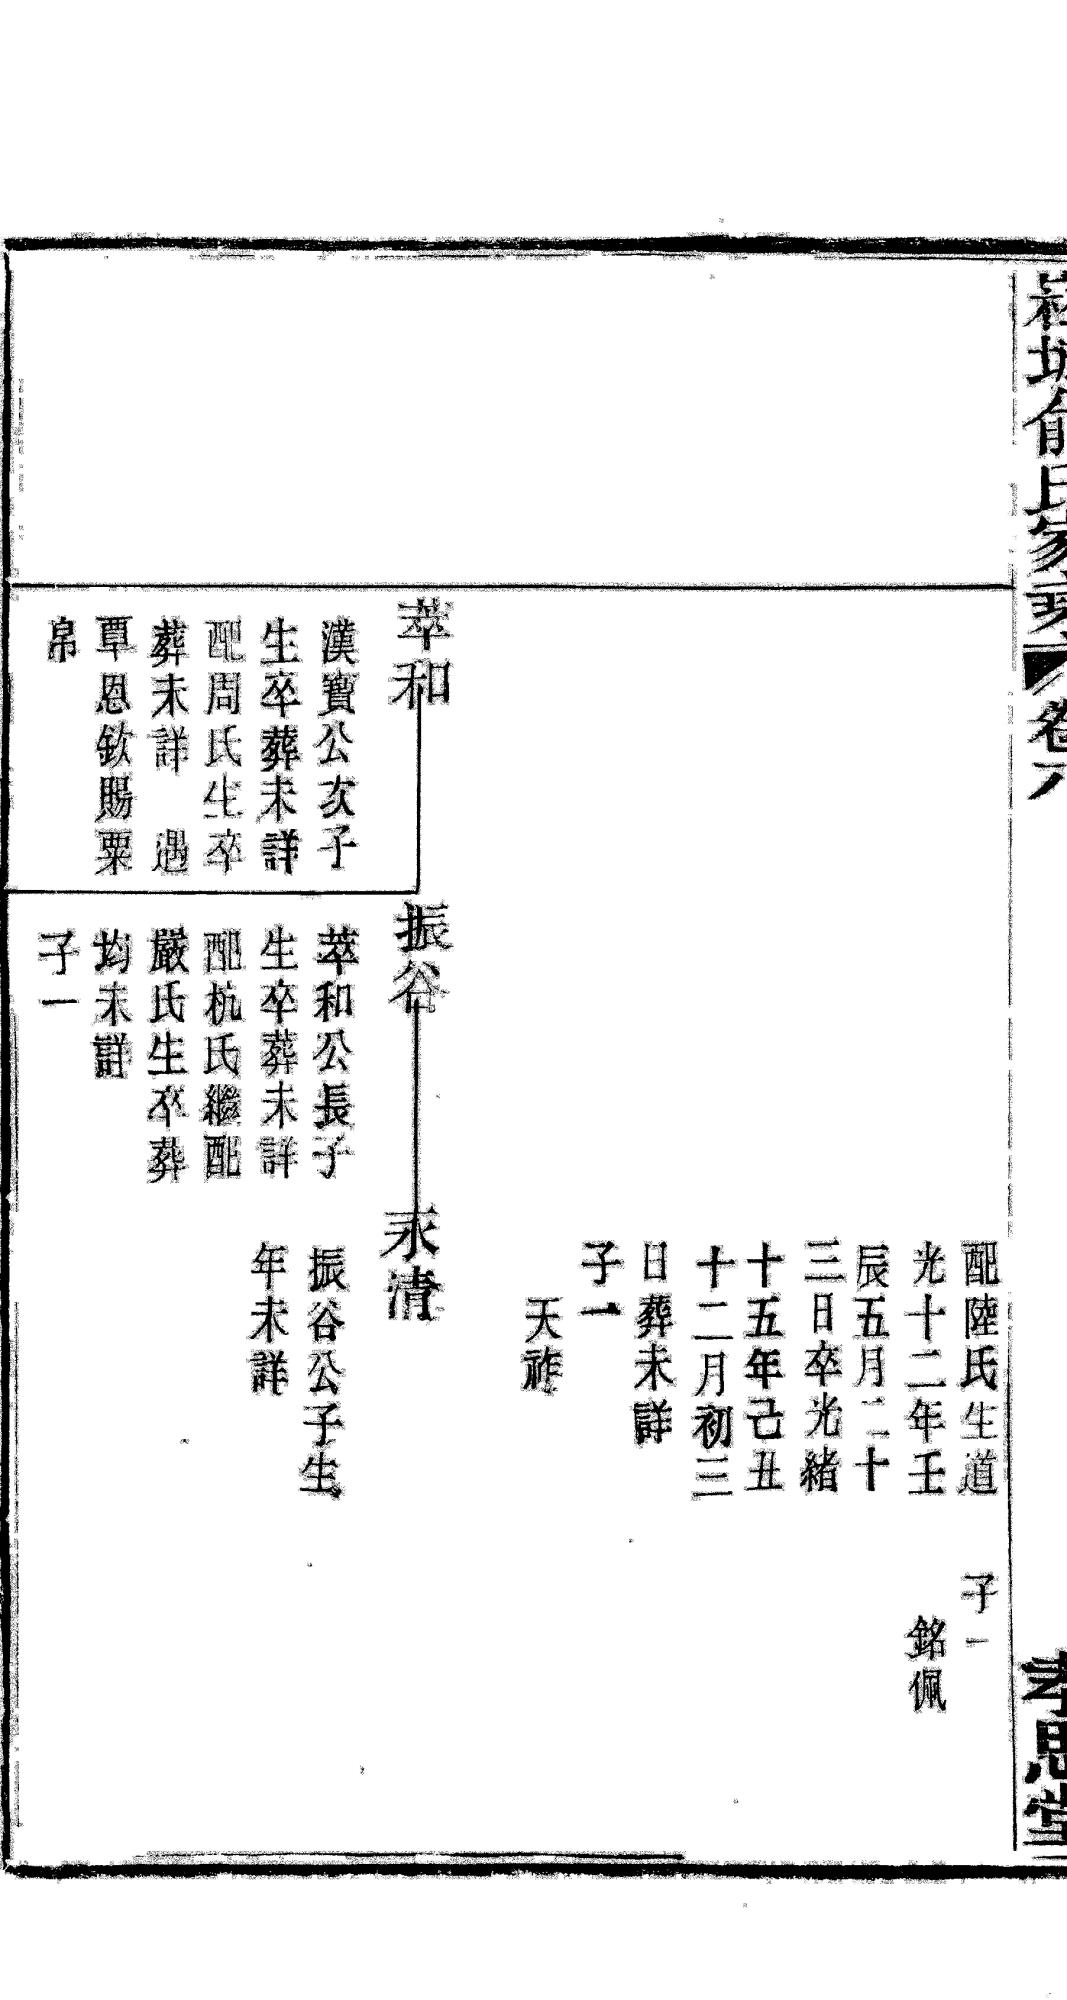 城俞氏家乘
卷八
孝思堂
子一
銘佩
配陸氏生道
光十二年壬
辰五月二十
三日卒光緒
十五年己丑
十二月初三
日葬未詳
子一
天祚
萃和
漢寶公次子
生卒葬未詳
配周氏生卒
葬未詳 遇
覃恩欽賜粟
帛
振谷
萃和公長子
生卒葬未詳
配杭氏繼配
嚴氏生卒葬
均未詳
子一
永清
振谷公子生
年未詳